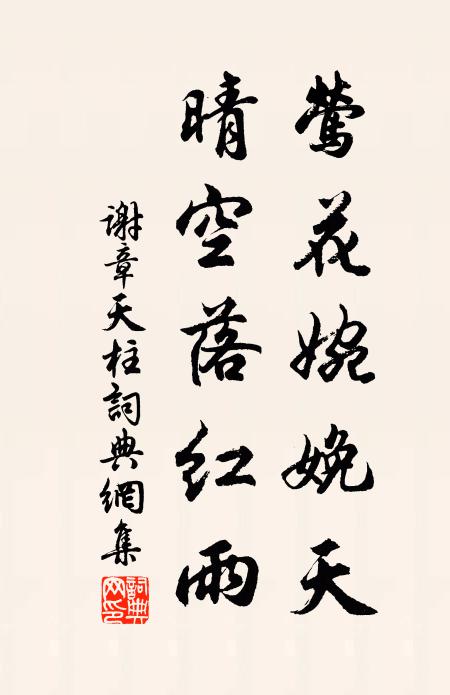 鶯花婉娩天
晴空落紅雨
謝章天柱詞典網集
詞典網印